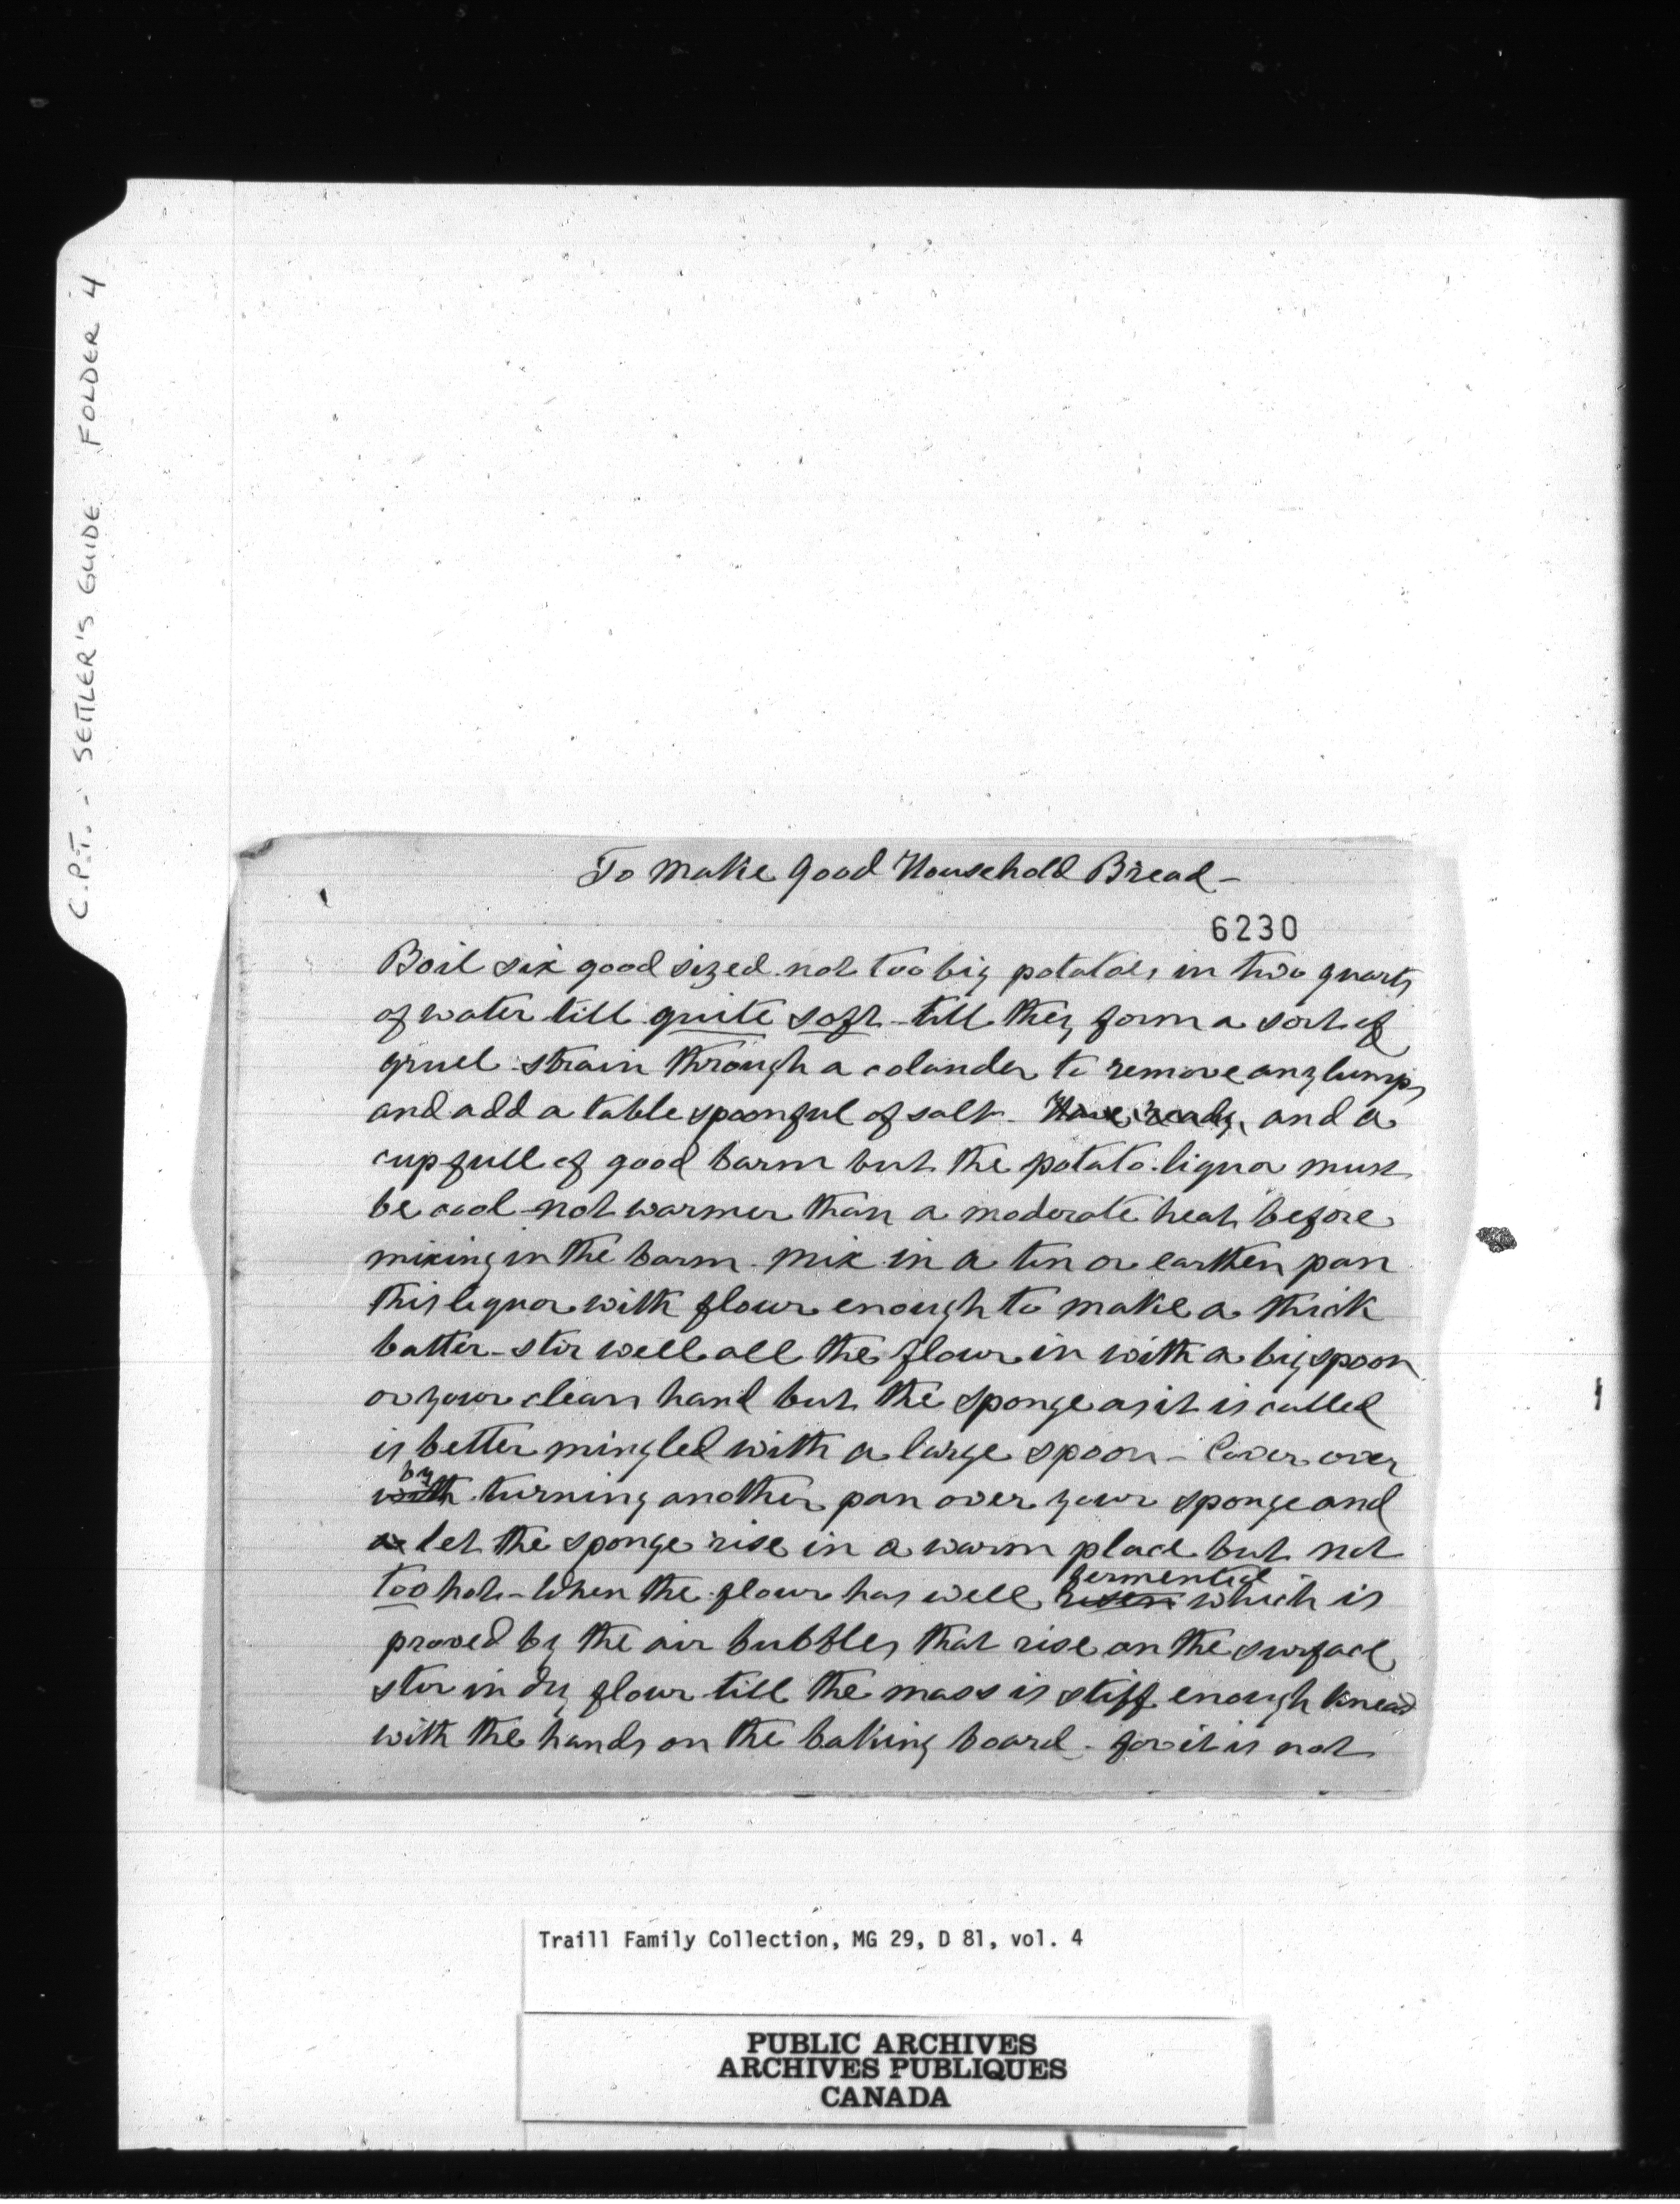 C.P.T. - SETTLER'S GUIDE FOLDER 4
To Make good Household Bread -
6230
Boil six good sized not too big potatoes in two quarts
of water till quite soft - till they form a sort of
gruel strain through a colander to remove any lumps
and add a table spoonful of salt - Have ready and a
cup full of good barm but the potato liquor must
be cool not warmer than a moderate heat before
mixing in the barm. Mix in a tin or earthen pan
this liquor with flour enough to make a thick
batter - stir well all the flour in with a big spoon
or your clean hand but the sponge as it is called
is better mingled with a large spoon - Cover over
by
with turning another pan over your sponge and
a let the sponge rise in a warm place but not
fermented
too hot - When the flour has well risen which is
proved by the air bubbles that rise on the surface
stir in dry flour till the mass is stiff enough knead
with the hands on the baking board - for it is not
Traill Family Collection, MG 29, D 81, vol. 4
PUBLIC ARCHIVES
ARCHIVES PUBLIQUES
CANADA